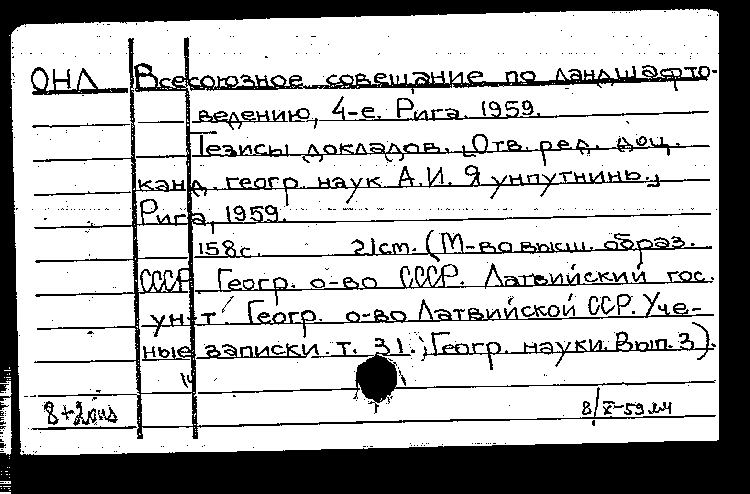 ОНЛ Всесоюзное совещание по ландшафто-
ведению, 4-е. Рига. 1959.
Тезисы докладов. [Отв. ред. доц.
канд. геогр. наук А.И. Яунпутнинь.]
Рига, 1959.
158с. 21cm. (М-во высш. образ.
СССР Геогр. о-во СССР. Латвийский гос.
ун-т. Геогр. о-во Латвийской ССР. Уче-
ные записки. т. 31.; Геогр. науки. Вып. 3).
8/X-59